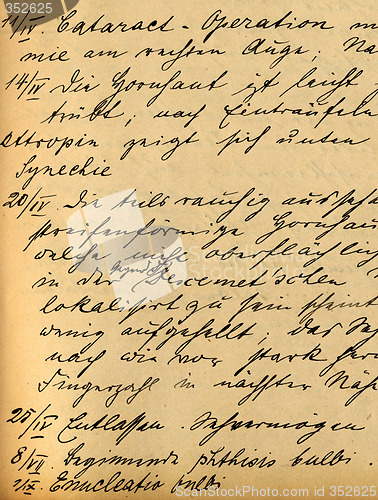 352625
11/IV. Cataract-Operation
mie am rechten Auge; Na
14/IV Die Hornhaut ist leicht g
trübt; nach Einträufeln
Attropin zeigt sich unten
Synechie
20/IV. Die teils rauchig aussehe
streifenförmige Hornhau
welche mehr oberflächlich
in der Descemet'schen
lokalisirt zu sein scheint
wenig aufgehellt; das Se
nach wie vor stark
Fingerzahl in nächster Näh
25/IV Entlassen. Sehvermögen
8/VII. beginnende phthisis bulbi.
Enucleatio bulbi
© www.photocase.com 352625